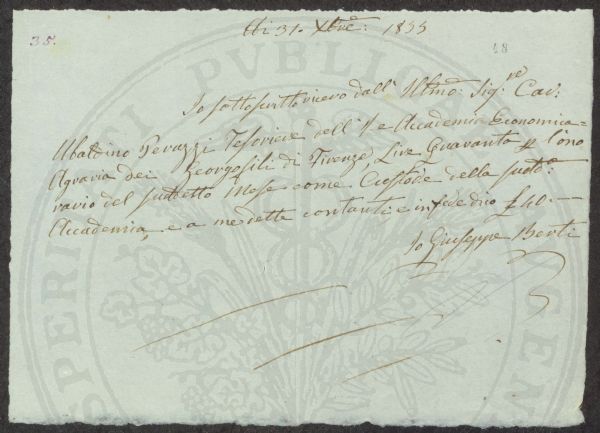 35.
Adi 31. Xbre: 1835
18
Io sottoscritto ricevo dall' Illmo: Sigre Cav:
Ubaldino Peruzzi Tesoriere dell' I e Accademia Economica=
Agraria dei Georgofili di Firenze, Lire Quaranta p l'ono
rario del suddetto Mese come Custode della sudta
Accademia, e a me dette contanti, e in fede dico £ 40.—
Io Giuseppe Berti
PUBLICA